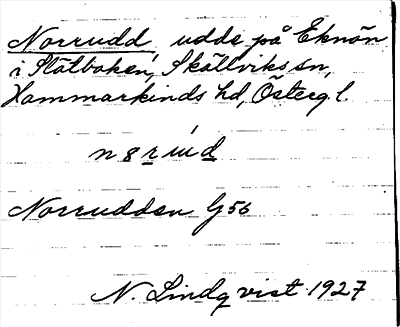 Norrudd, udde på Eknön
i Slätbaken, Skällviks sn,
Hammarkinds hd, Österg. l.
Norrudden G 56
N. Lindqvist 1927